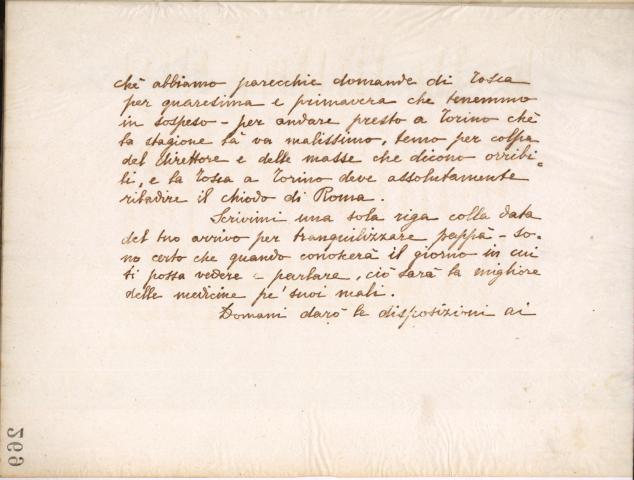 chè abbiamo parecchie domande di Tosca
per quaresima e primavera che tenemmo
in sospeso - per andare presto a Torino chè
la stagione là va malissimo, temo per colpa
del Direttore e delle masse che dicono orribi=
li, e la Tosca a Torino deve assolutamente
ribadire il chiodo di Roma.
Scrivimi una sola riga colla data
del tuo arrivo per tranquilizzare pappa - so-
no certo che quando conoscerà il giorno in cui
ti possa vedere e parlare, ciò sarà la migliore
delle medicine pe' suoi mali.
Domani darò le disposizioni ai
269